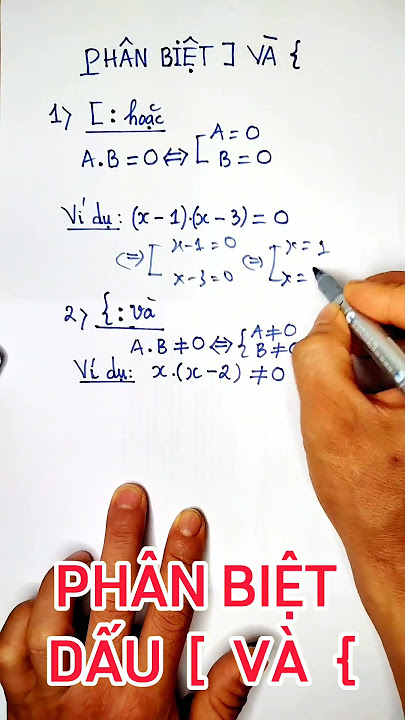 PHÂN BIỆT ] VÀ {
1) [ : hoặc
A.B = 0 ⇔ [ A = 0
B = 0
Ví dụ: (x - 1).(x - 3) = 0
⇔ [ x - 1 = 0 ⇔ [ x = 1
x - 3 = 0 x =
2) { : và
A.B ≠ 0 ⇔ { A ≠ 0
B ≠ 0
Ví dụ: x.(x - 2) ≠ 0
PHÂN BIỆT
DẤU [ VÀ {